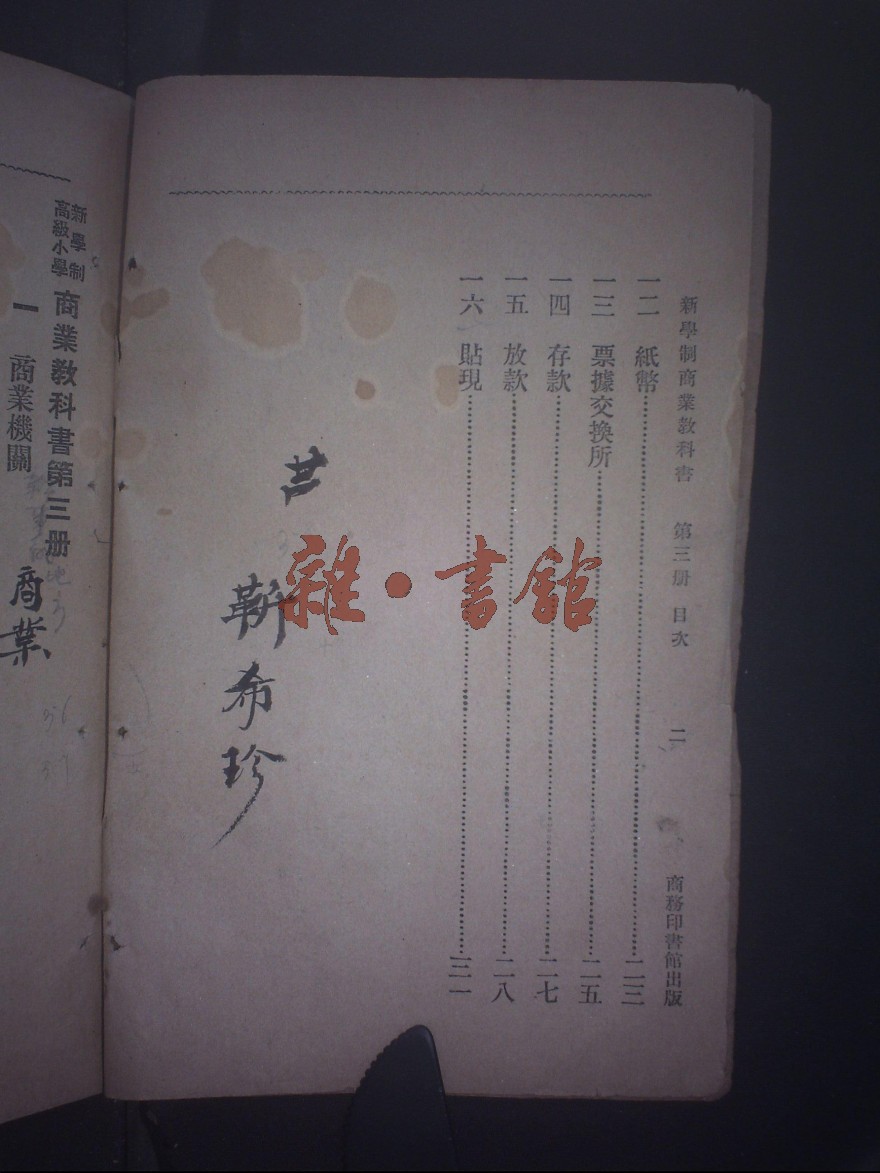 新學制商業教科書 第三册 目次 二 商務印書館出版
一二 紙幣 二三
一三 票據交換所 二五
一四 存款 二七
一五 放款 二八
一六 貼現 三一
雜·書館
靳希珍
新學制
高級小學
商業教科書第三册
一 商業機關
商業